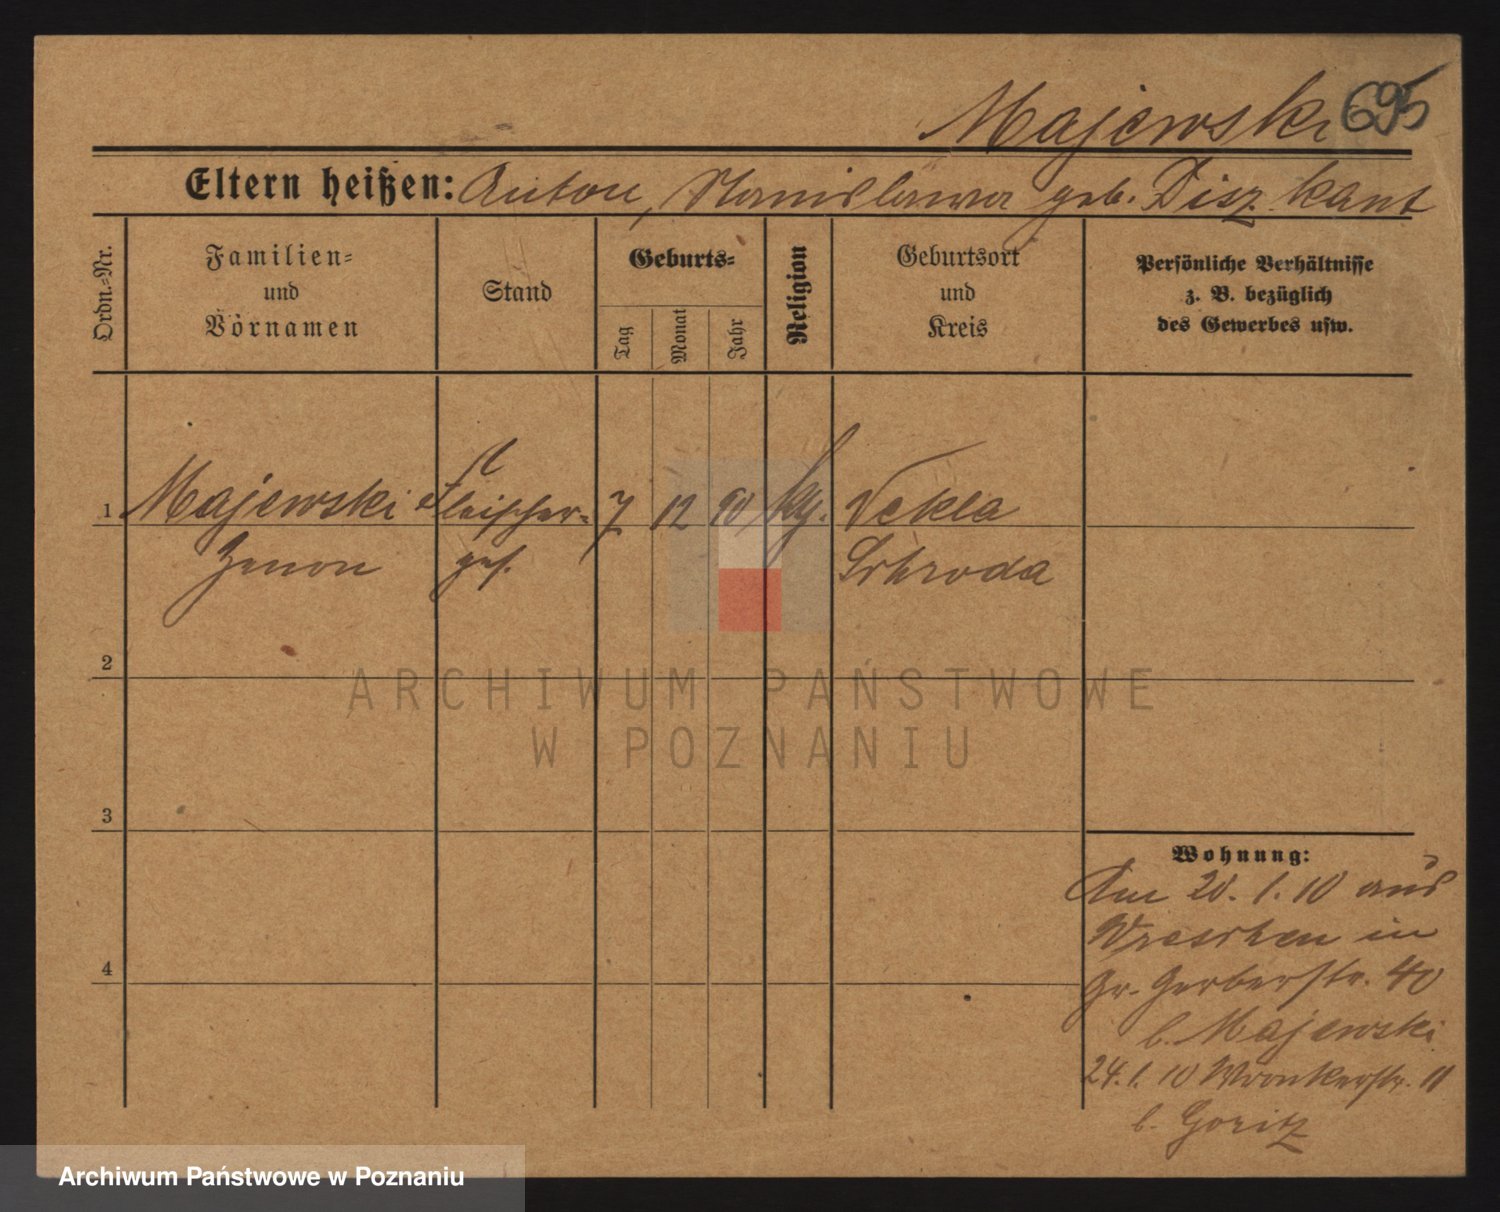 Majewski 695
Eltern heißen: Anton, Stanislawa geb. Diszkant
Ordn.-Nr.
Familien-
und
Vornamen
Stand
Geburts-
Tag
Monat
Jahr
Religion
Geburtsort
und
Kreis
Persönliche Verhältnisse
z. B. bezüglich
des Gewerbes usw.
1 Majewski Fleischer- 7 12 90 kg. Tekla
Zenon ges. Schroda
2
3
4
Wohnung:
Am 20. 1. 10 aus
Wreschen in
Gr. Gerberstr. 40
b. Majewski
24. 1. 10 Wronkerstr. 11
b. Goritz
ARCHIWUM PAŃSTWOWE
W POZNANIU
Archiwum Państwowe w Poznaniu